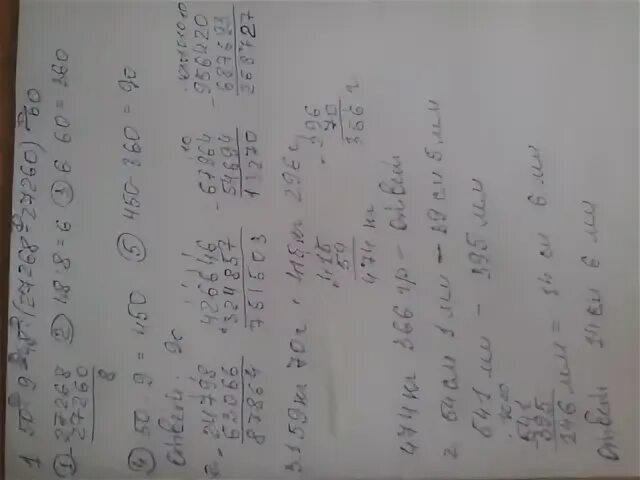 1 50·9-48:(27268-27260)·60
① 27268
27260
8
② 48:8=6 ③ 6·60=360
④ 50·9=450 ⑤ 450-360=90
Ответ: 90
2. 24798
63066
87864
426646
+324857
751503
-67964
54694
13270
-956420
687693
268727
3. 59кг 70г 415кг 296г
415
59
474 кг
296
70
366 г
474 кг 366 гр - Ответ
2 54см 1мм - 39см 5мм
541 мм - 395 мм
541
395
146 мм = 14 см 6 мм
Ответ 14 см 6 мм